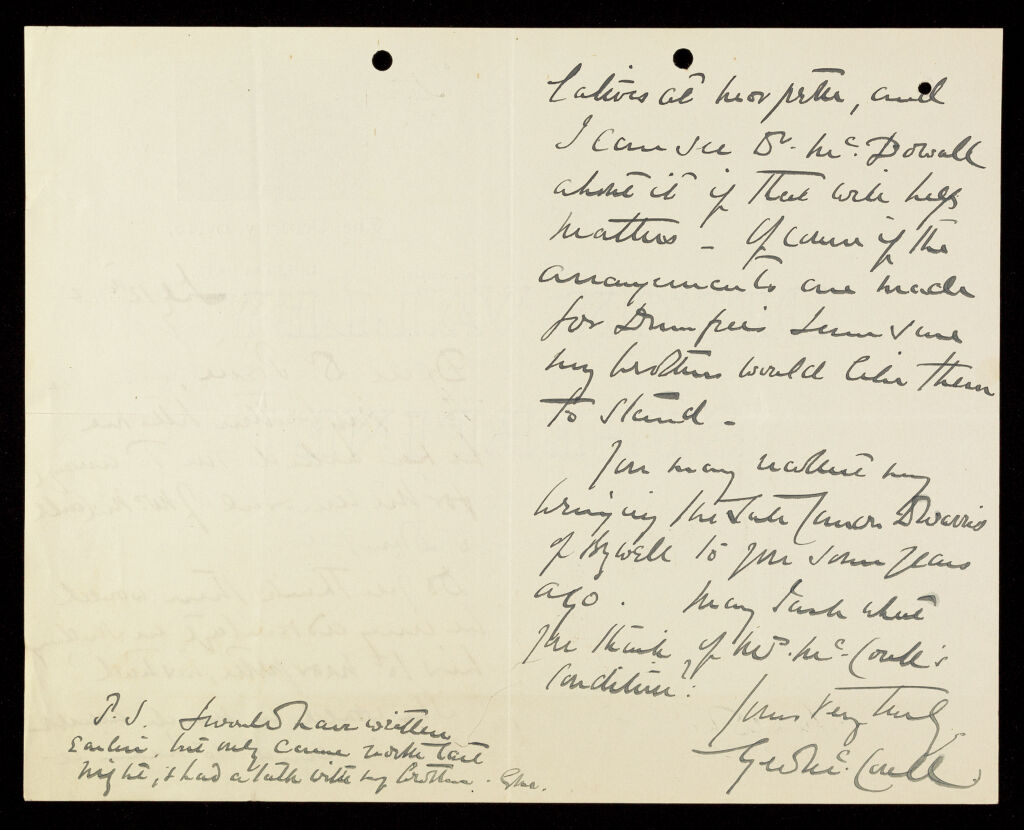 latives at Morpeth, and
I can see Dr. Mc. Dowall
about it if that will help
matters - Of course if the
arrangements are made
for Dumfries I am sure
my brothers would like them
to stand -
You may recollect my
bringing the late Canon Dwarris
of Bywell to you some years
ago. May I ask what
you think of Mc. Coull's
condition?
Yours very truly
Geo Mc. Coull
P.S. I would have written
Earlier, but only came north last
night, & had a talk with my brother.